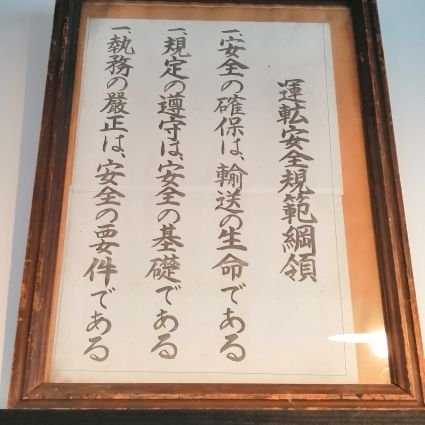 運転安全規範綱領
一、安全の確保は、輸送の生命である
一、規定の遵守は、安全の基礎である
一、執務の厳正は、安全の要件である